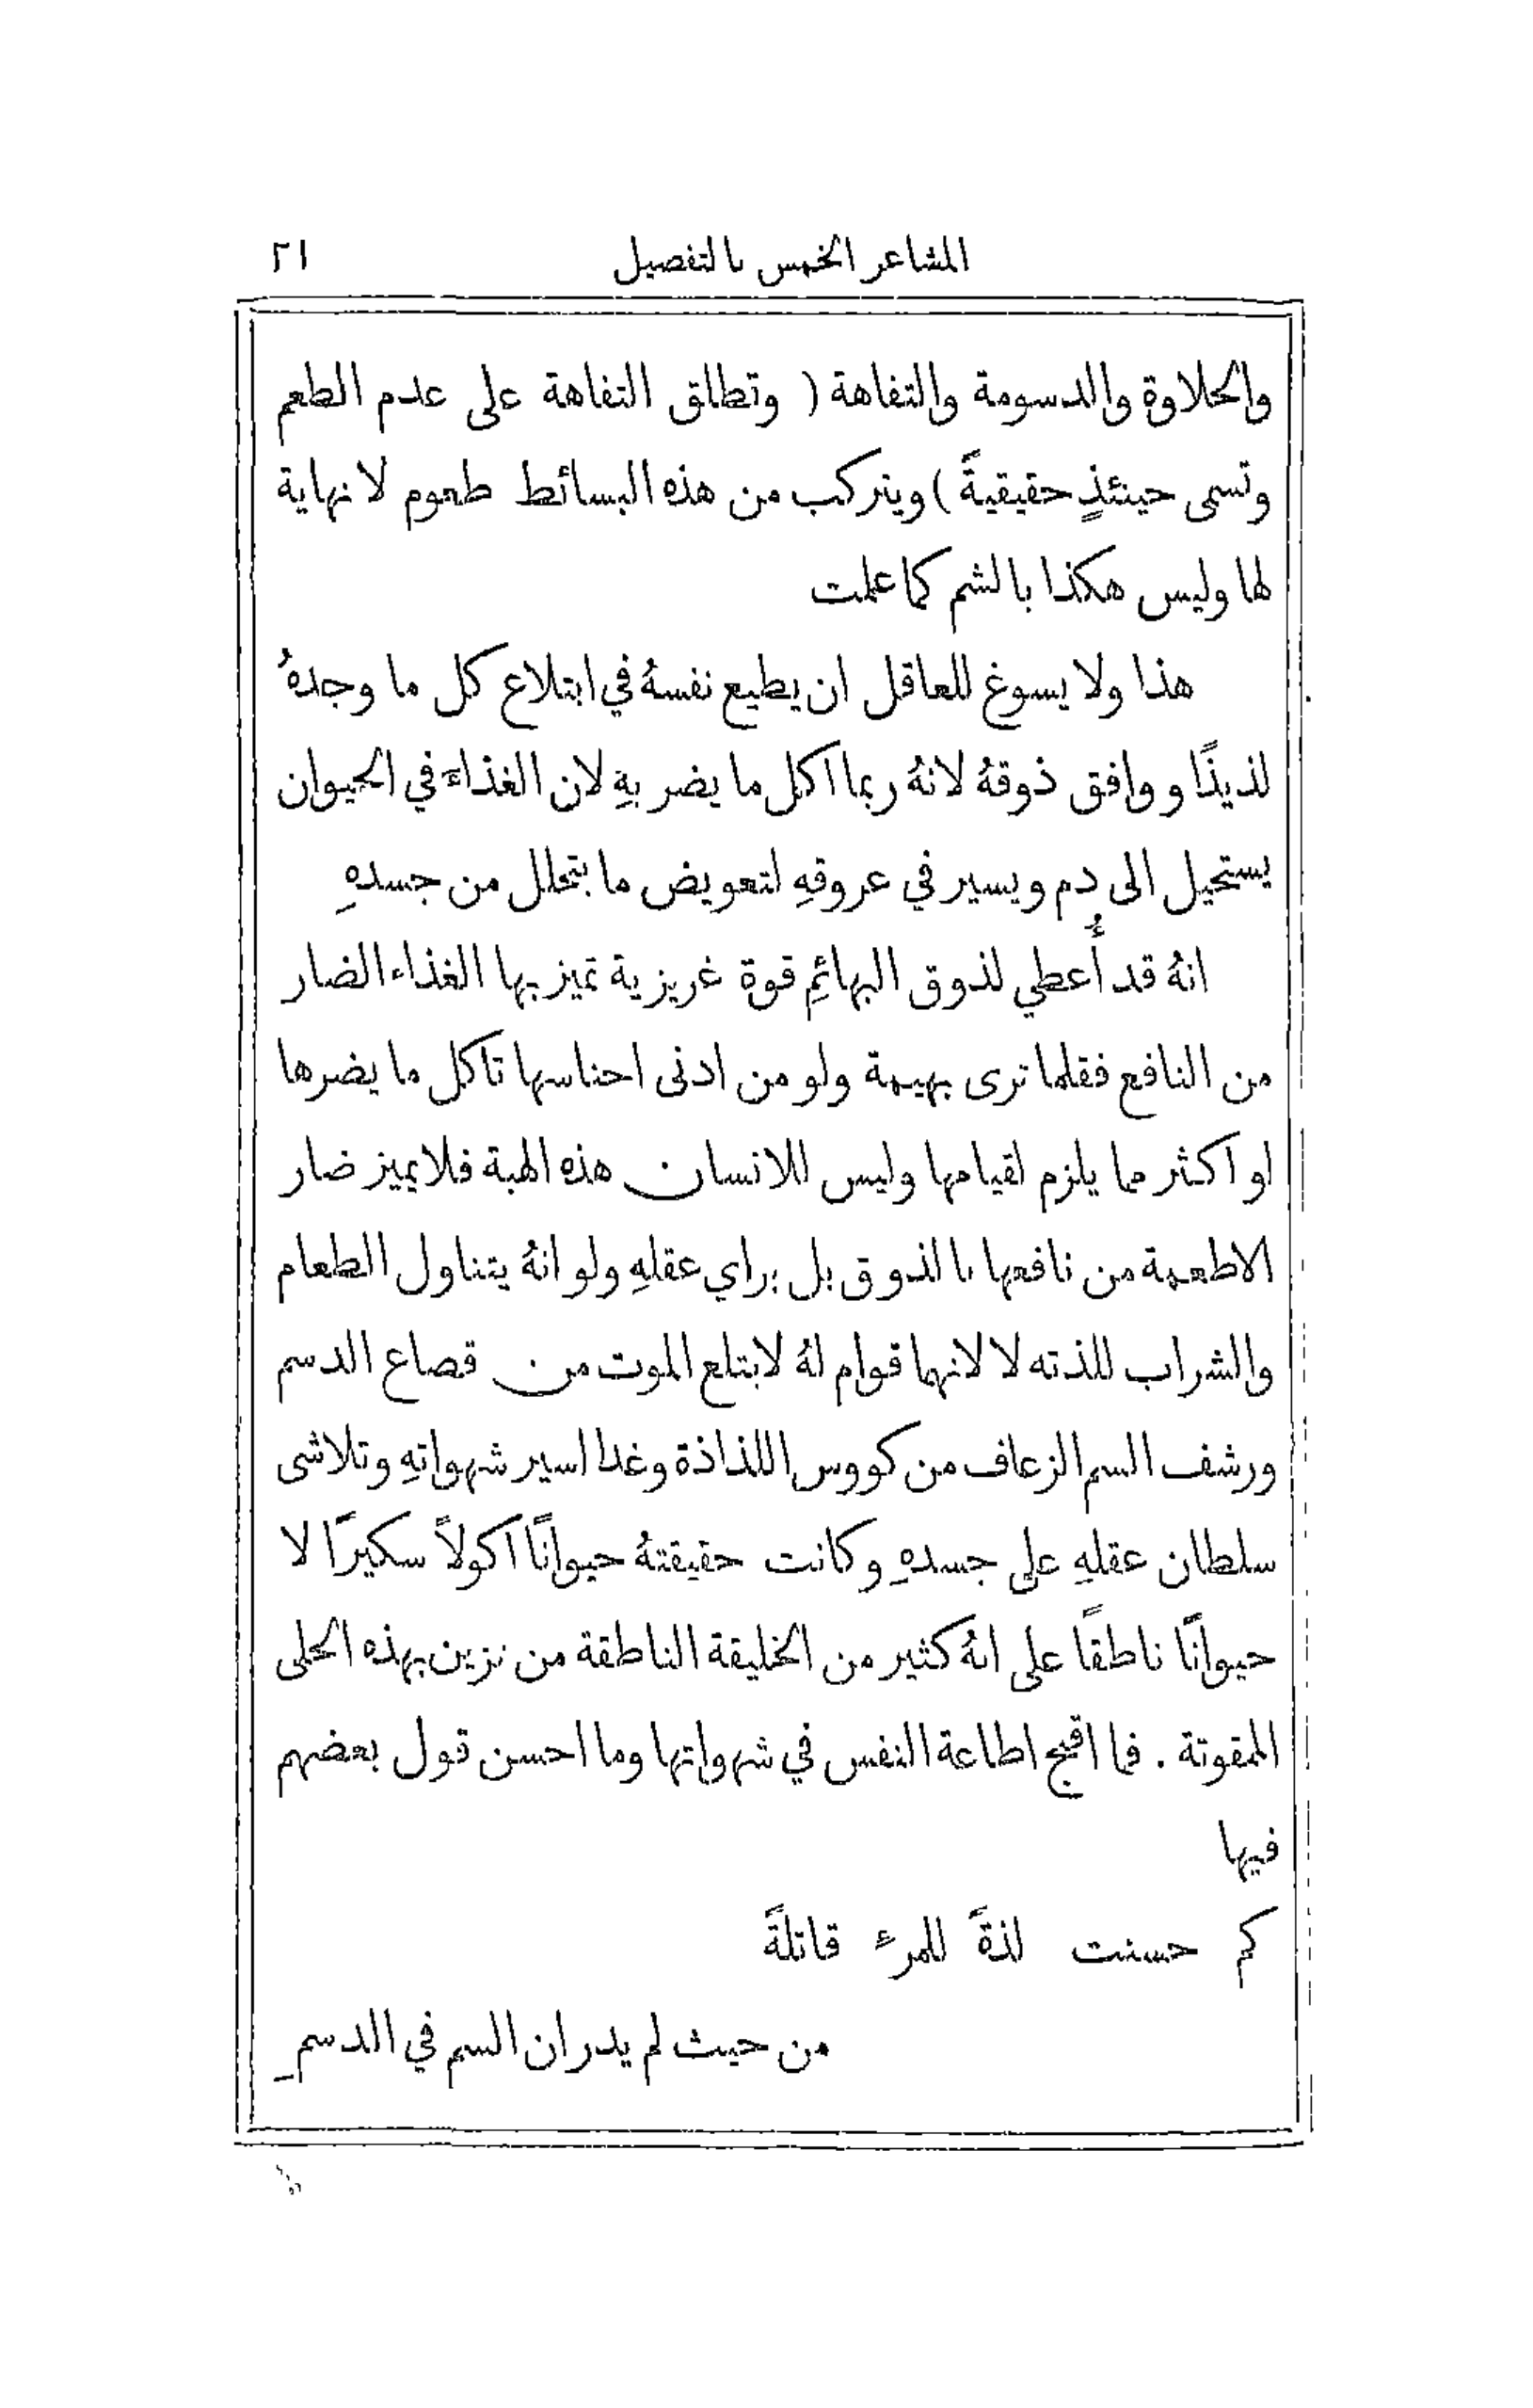 المشاعر الخمس بالتفصيل ٢١
والحلاوة والدسومة والتفاهة ( وتطلق التفاهة على عدم الطعم
وتسمى حينئذٍ حقيقيةً ) ويتركب من هذه البسائط طعوم لا نهاية
لها وليس هكذا بالشم كما علمت
هذا ولا يسوغ للعاقل ان يطيع نفسهُ في ابتلاع كل ما وجدهُ
لذيذًا ووافق ذوقهُ لانهُ ربما اكل ما يضر بهِ لان الغذاءَ في الحيوان
يستحيل الى دم ويسير في عروقهِ لتعويض ما يتحلل من جسدهِ
انهُ قد أُعطي لذوق البهائمِ قوة غريزية تميز بها الغذاء الضار
من النافع فقلما ترى بهيمة ولو من ادنى اجناسها تاكل ما يضرها
او اكثر مما يلزم لقيامها وليس للانسان هذه الهبة فلا يميز ضار
الاطعمة من نافعها بالذوق بل براي عقلهِ ولو انهُ يتناول الطعام
والشراب للذته لا لانهما قوام لهُ لابتلع الموت من قصاع الدسم
ورشف السم الزعاف من كووس اللذاذة وغدا اسير شهواتهِ وتلاشى
سلطان عقلهِ على جسدهِ وكانت حقيقتهُ حيوانًا اكولاً سكيرًا لا
حيوانًا ناطقاً على انهُ كثير من الخليقة الناطقة من تزين بهذه الحلى
الممقوتة . فما اقبح اطاعة النفس في شهواتها وما احسن قول بعضهم
فيها
كم حسنت لذةً للمرءِ قاتلةً
من حيث لم يدر ان السم في الدسمِ